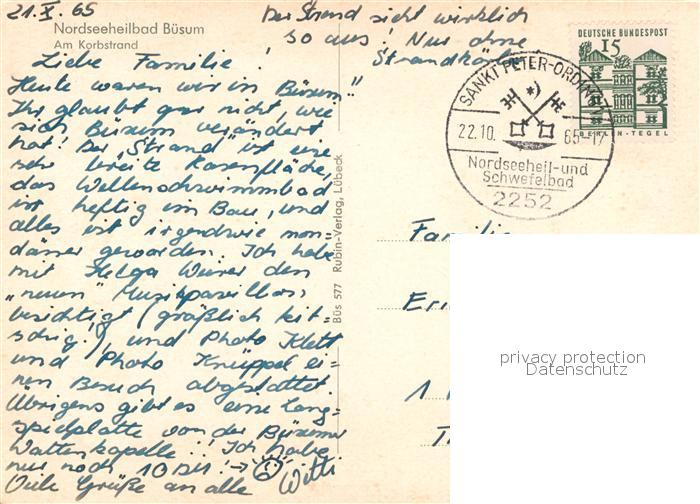 21.X.65
Nordseeheilbad Büsum
Am Korbstrand
Der Strand sieht wirklich
so aus! Nur ohne
Strandkörbe
Liebe Familie!
Heute waren wir in Büsum
Ihr glaubt gar nicht, wie
sich Büsum verändert
hat! Der "Strand" ist eine
sehr breite Rasenfläche,
das Wellenschwimmbad
ist heftig im Bau, und
alles ist irgendwie mon=
däner geworden. Ich habe
mit Helga den
"neuen" Musikpavillon
besichtigt (gräßlich kit=
schig!), und Photo Klett
und Photo Knüppel ei=
nen Besuch abgestattet.
Übrigens gibt es eine Lang=
spielplatte von der Büsumer
Wattenkapelle!! Ich habe
nur noch 10 DM! →
Viele Grüße an alle
Büs 577 Rubin-Verlag, Lübeck
DEUTSCHE BUNDESPOST
15
BERLIN-TEGEL
SANKT PETER-ORDING
22.10. 65-17
Nordseeheil-und
Schwefelbad
2252
Familie
Eri
1
T
privacy protection
Datenschutz